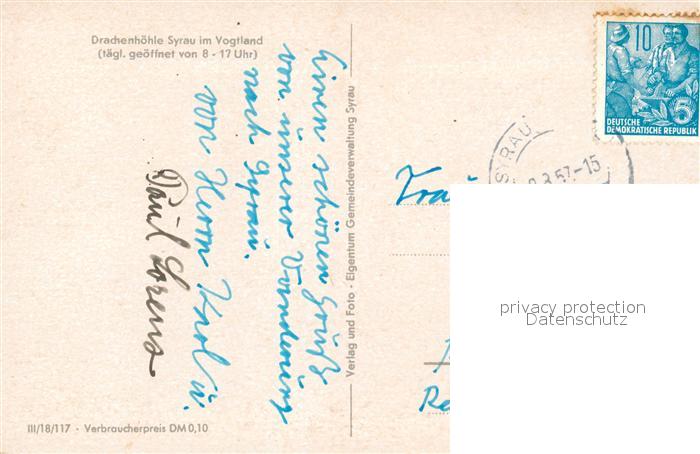 Drachenhöhle Syrau im Vogtland
(tägl. geöffnet von 8 - 17 Uhr)
Einen schönen Gruß
von unserer Wanderung
nach Syrau.
von Herrn Knol u.
Paul Lorenz
III/18/117 · Verbraucherpreis DM 0,10
Verlag und Foto · Eigentum Gemeindeverwaltung Syrau
10
5
DEUTSCHE
DEMOKRATISCHE REPUBLIK
SYRAU
3.57-15
privacy protection
Datenschutz